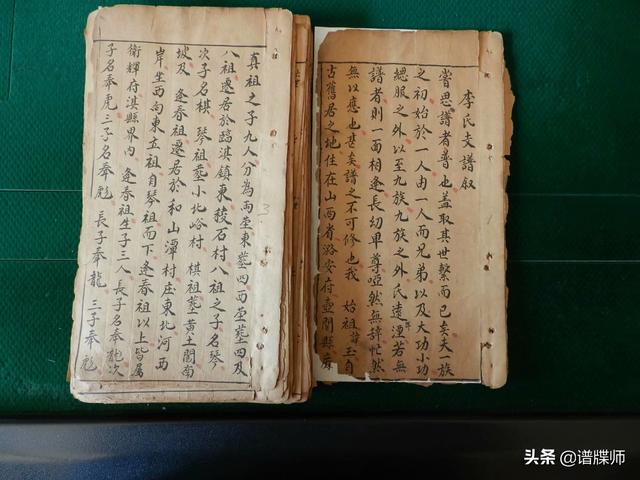 李氏支譜叙
嘗思譜者普也蓋取其世繫而已矣夫一族
之初始於一人由一人而兄弟以及大功小功
緦服之外以至九族九族之外氏遠年湮若無
譜者則一面相逢長幼卑尊啞然無辭忙然
無以應也甚矣譜之不可修也我 始祖玉自
古舊居之地住在山西省潞安府壺關縣
真祖之子九人分為兩塋東塋四西塋葬四及
八祖遷居於臨淇鎮東稜石村八祖之子名琴
次子名棋 琴祖塟小北峪村 棋祖塟黄土關南
坡及 逢春祖遷居於和山潭村庄東北河西
岸坐西向東立祖自琴祖而下逢春祖以上皆属
衛輝府淇縣界内 逢春祖生子三人長子名奉龍次
子名奉虎三子名奉彪 長子奉龍 三子奉彪
3
头条 @谱牒师